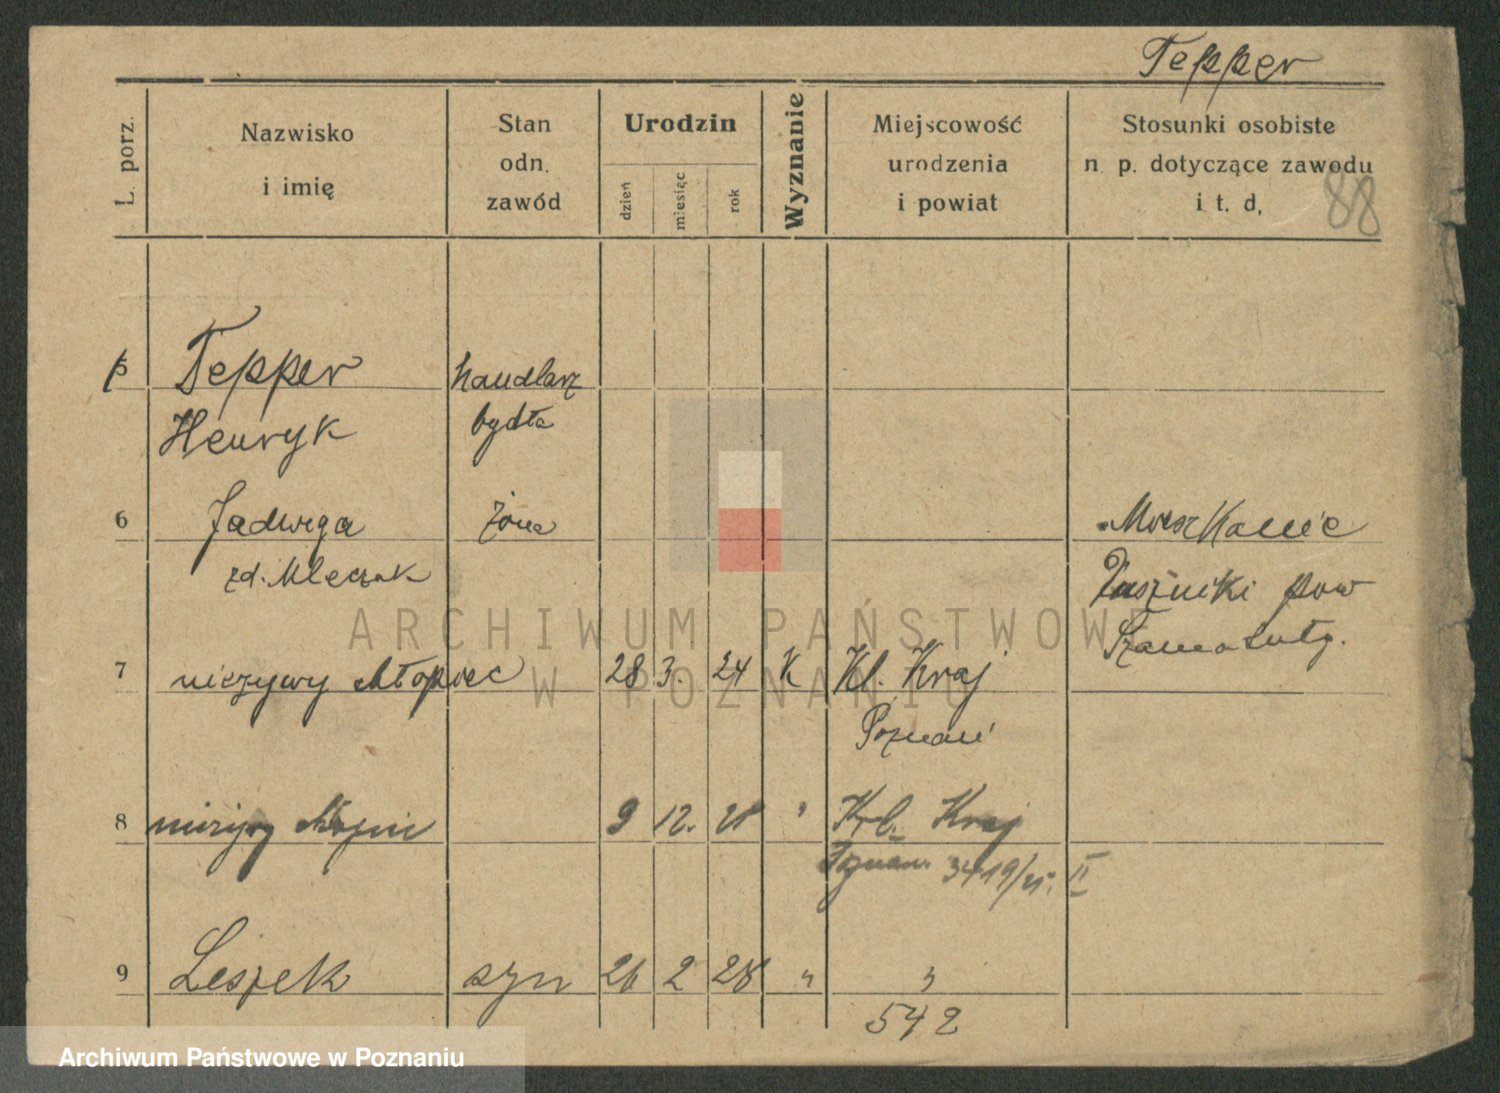 Tepper
L. porz.
Nazwisko
i imię
Stan
odn.
zawód
Urodzin
dzień
miesiąc
rok
Wyznanie
Miejscowość
urodzenia
i powiat
Stosunki osobiste
n. p. dotyczące zawodu
i t. d.
88
5 Tepper handlarz
Henryk bydła
6 Jadwiga żona Mieszkanie
zd. Mleczak pow
Szamotuły.
7 nieżywy chłopiec 28 3. 24 K Kl. Kraj
Poznań
8 9 12. " Kl. Kraj
Poznań 3419/25. II
9 Leszek syn 26 2 28 " "
542
ARCHIWUM PAŃSTWOWE
W POZNANIU
Archiwum Państwowe w Poznaniu